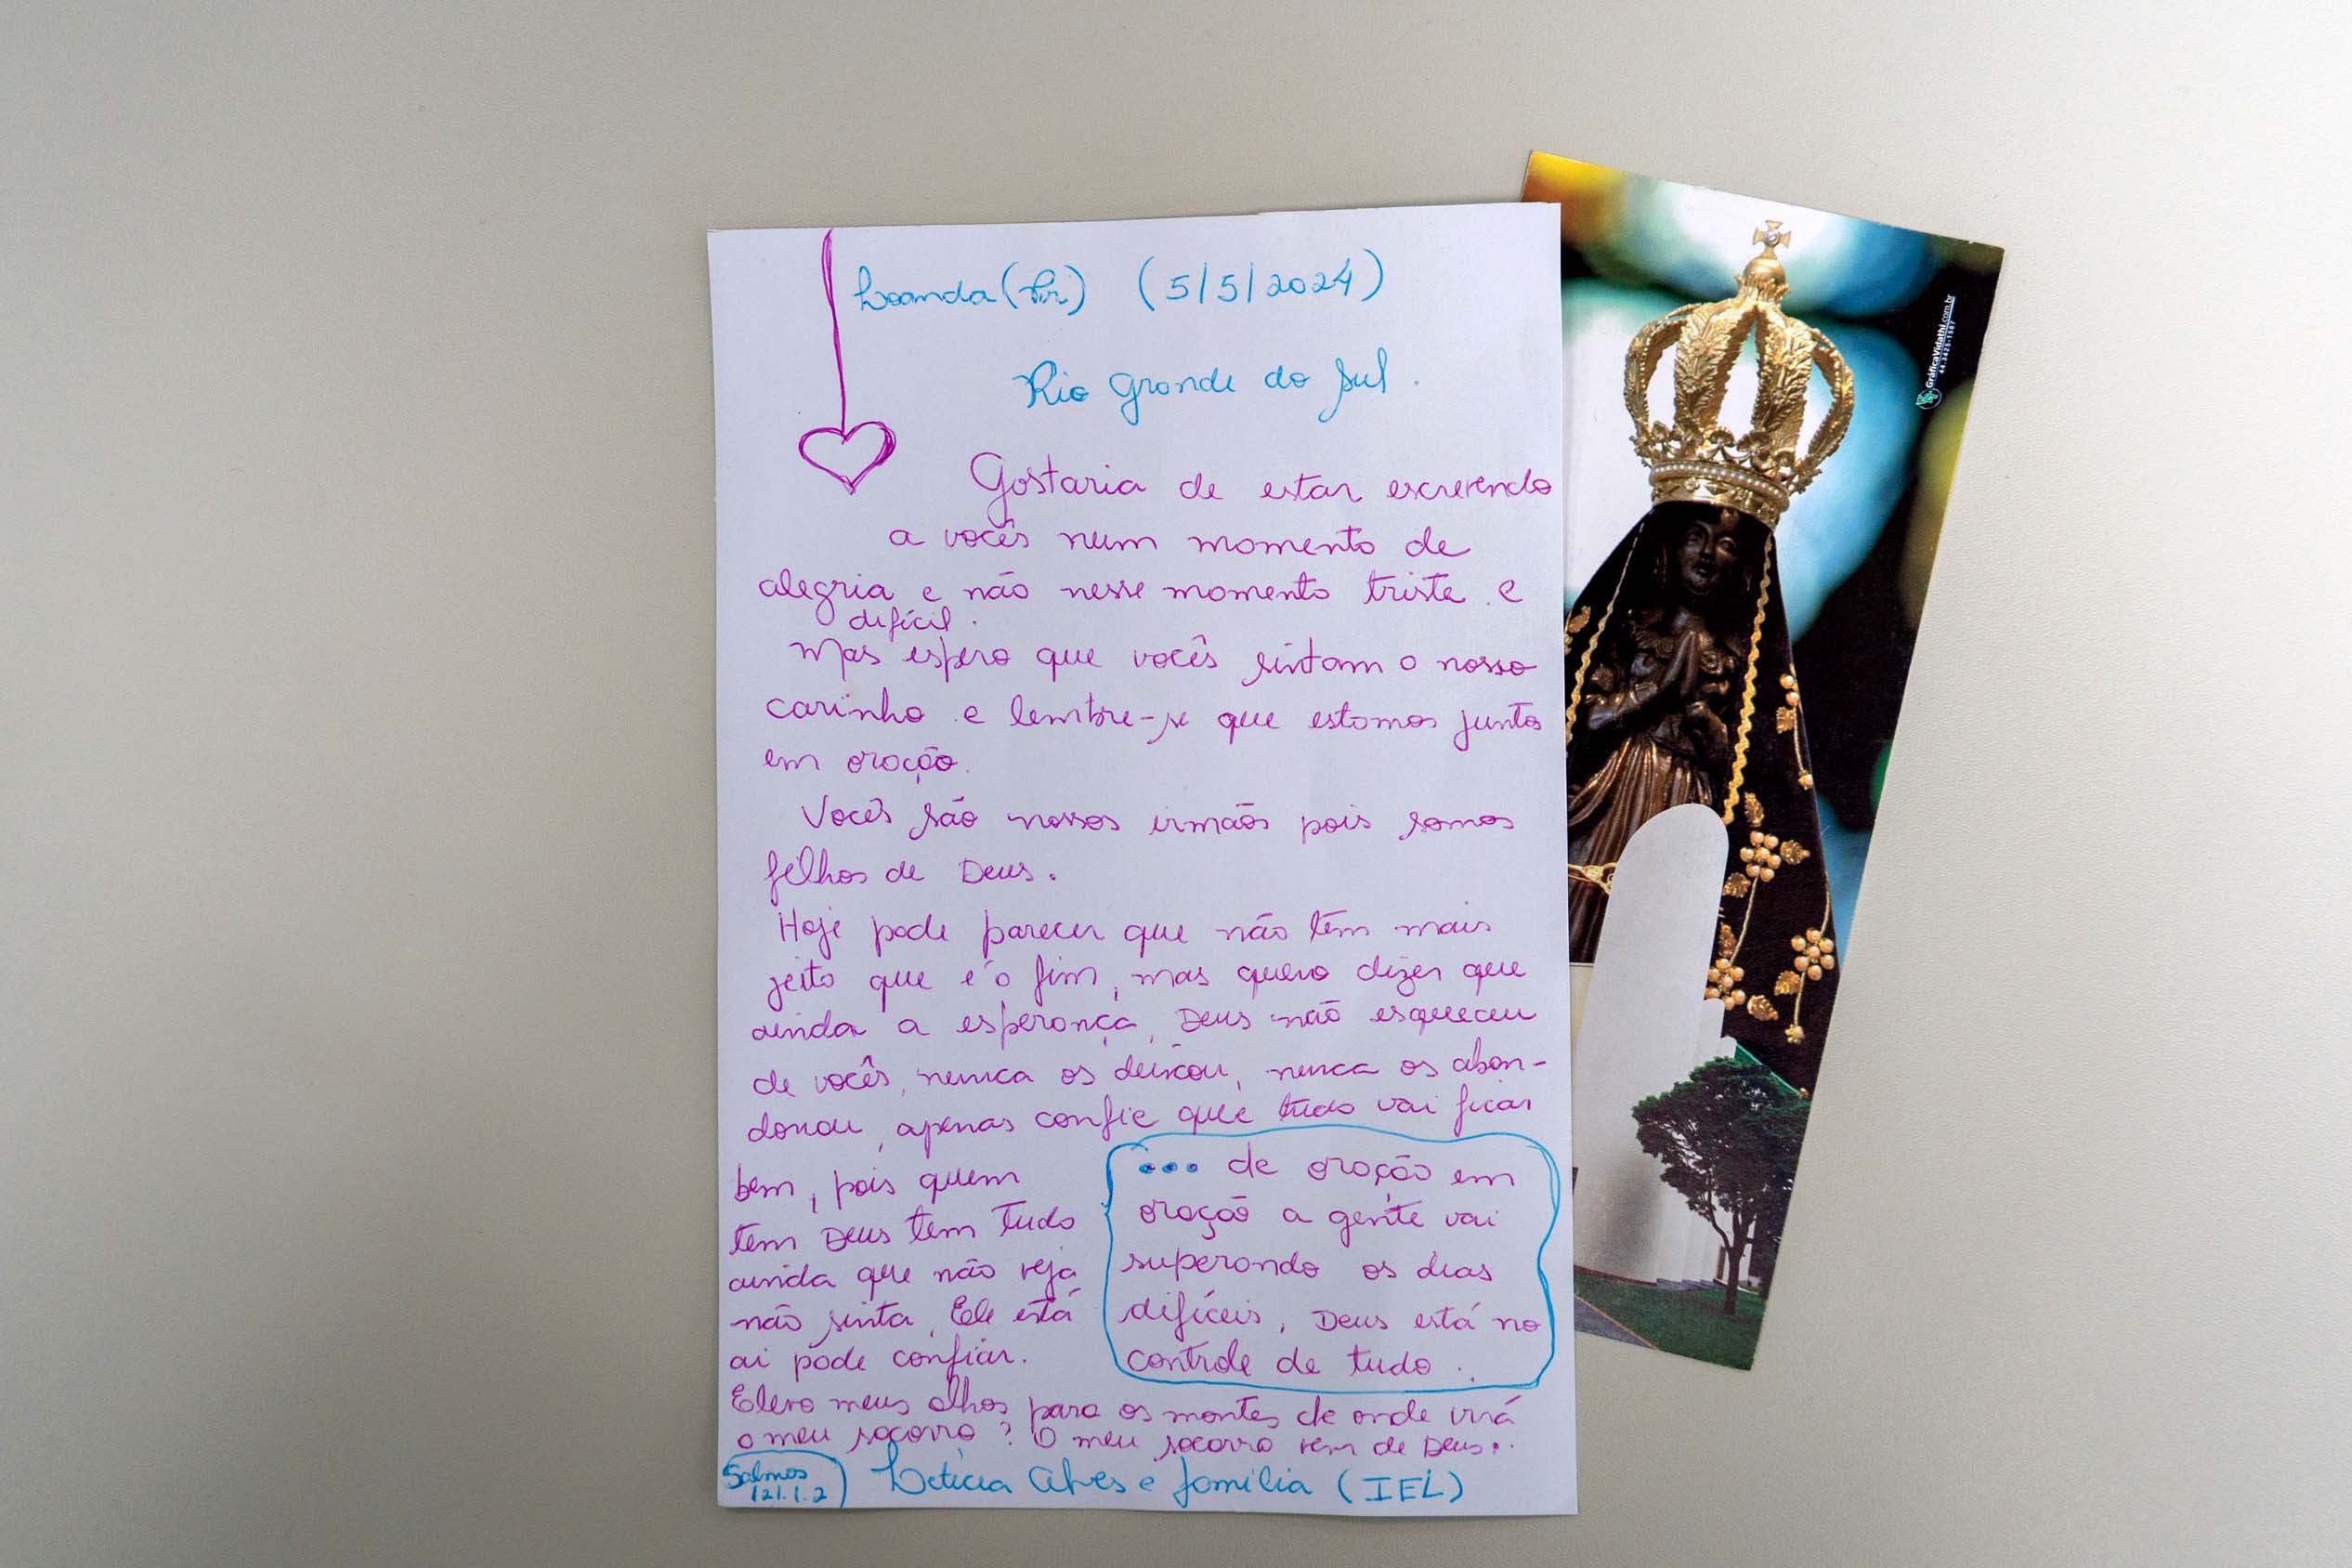 Loanda (Pr) (5/5/2024)
Rio Grande do Sul.
Gostaria de estar escrevendo
a vocês num momento de
alegria e não nesse momento triste e
difícil.
Mas espero que vocês sintam o nosso
carinho e lembre-se que estamos juntos
em oração.
Vocês são nossos irmãos pois somos
filhos de Deus.
Hoje pode parecer que não têm mais
jeito que é o fim, mas quero dizer que
ainda a esperança, Deus não esqueceu
de vocês, nunca os deixou, nunca os aban-
donou, apenas confie que tudo vai ficar
bem, pois quem
tem Deus tem tudo
ainda que não veja
não sinta, Ele está
ai pode confiar.
... de oração em
oração a gente vai
superando os dias
difíceis, Deus está no
controle de tudo.
Elevo meus olhos para os montes de onde virá
o meu socorro? O meu socorro vem de Deus..
Salmos
121.1.2
Letícia Alves e família (IEL)
GráficaVidathi.com.br
44.3425-1587